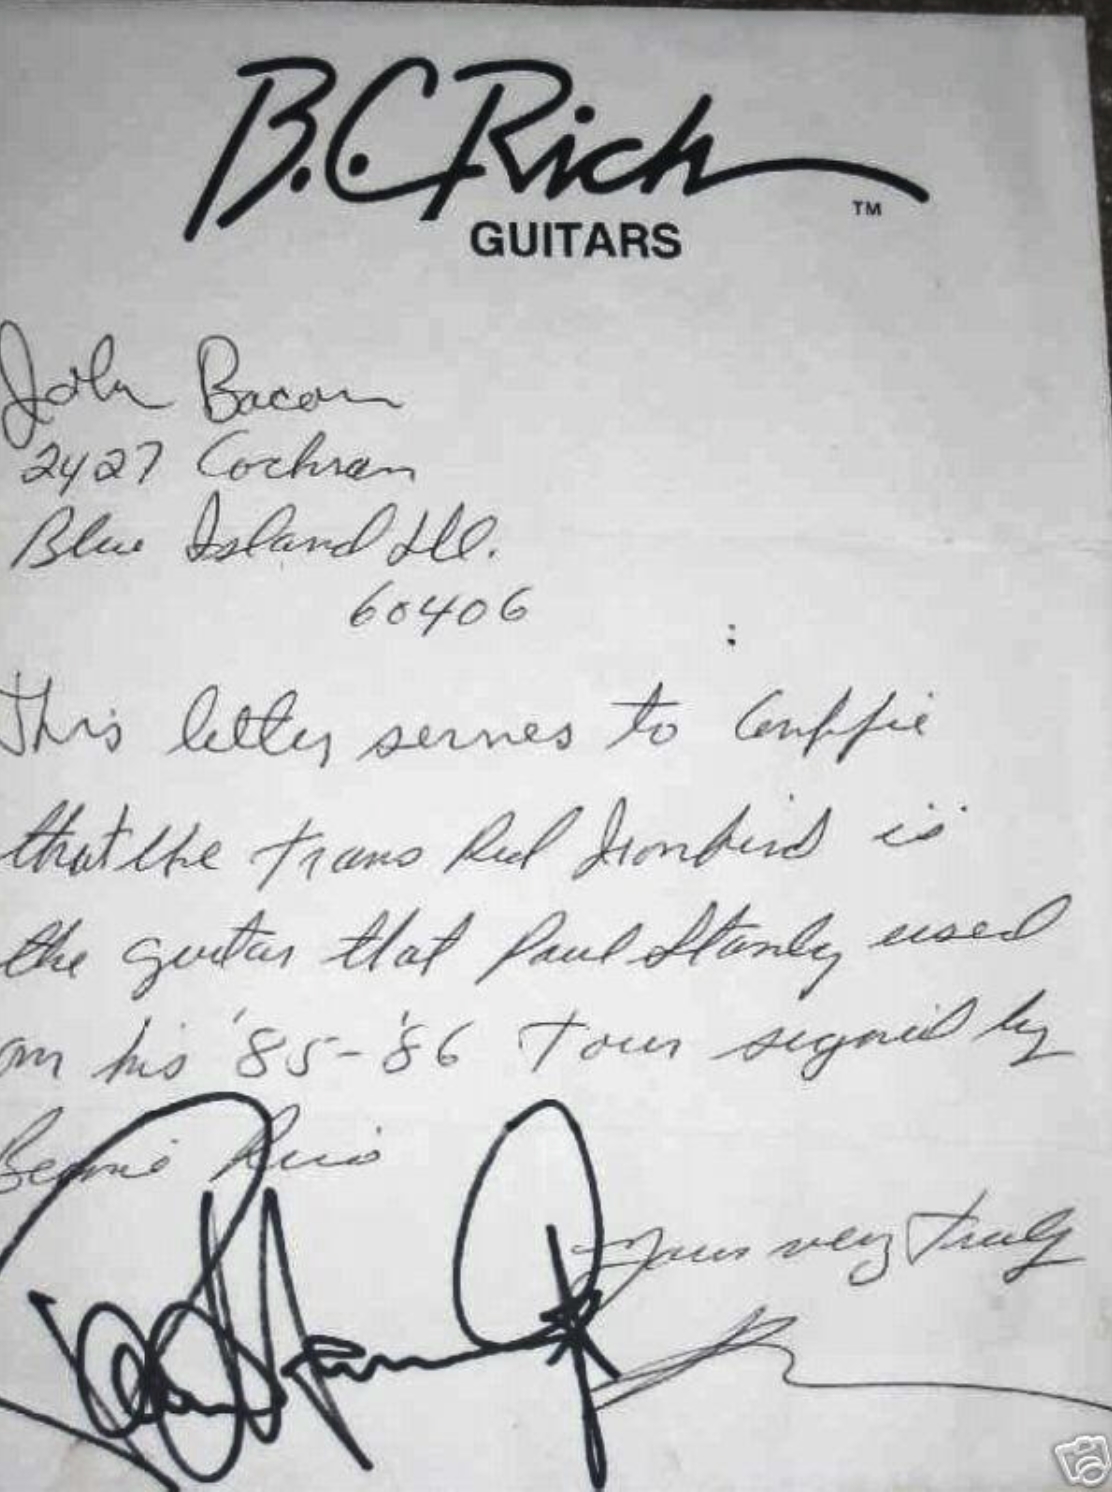 B.C. Rich
TM
GUITARS
John Bacon
2427 Cochran
Blue Island Ill.
60406
This letter serves to
that the Trans Red Ironbird is
the guitar that Paul Stanly used
on his '85-'86 Tour signed by
Bernie Rico
Yours very Truly